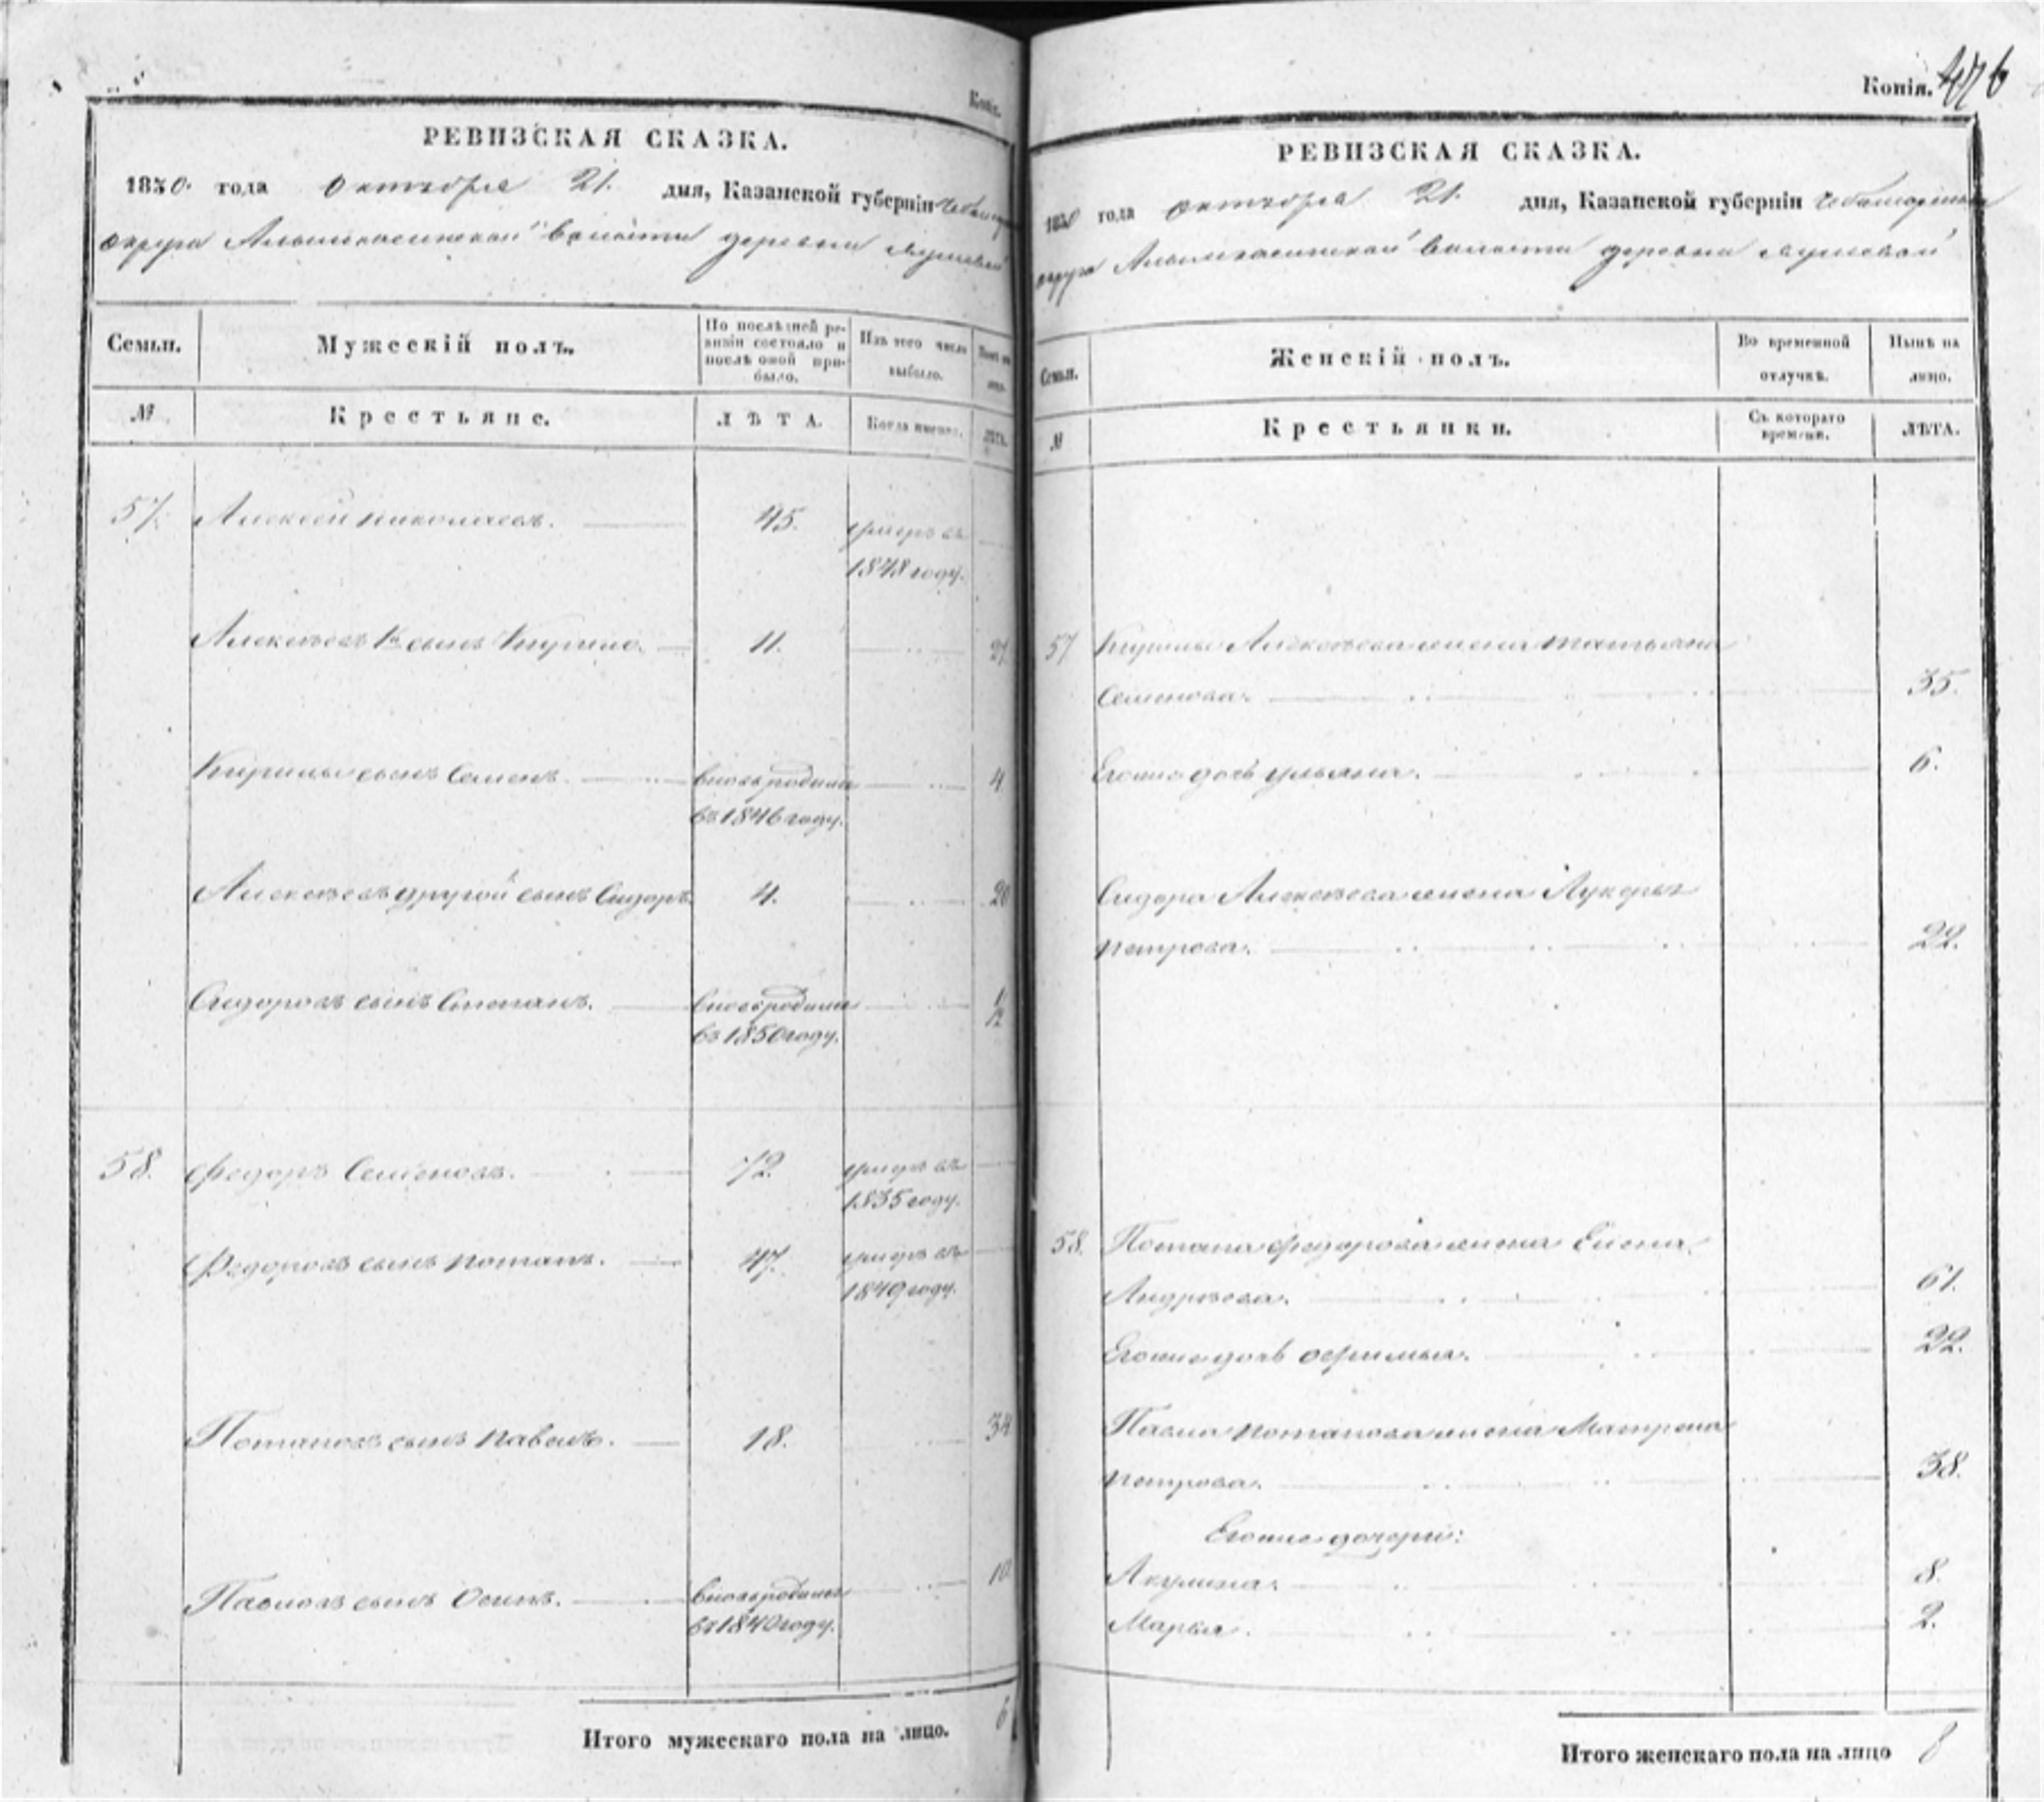 Копія.
РЕВИЗСКАЯ СКАЗКА.
1850. года Октября 21. дня, Казанской губерніи
округа Алымкасинской волости деревни
Семьи.
Мужескій полъ.
По послѣдней ре-
визіи состояло и
послѣ оной при-
было.
Изъ того числа
выбыло.
№
Крестьяне.
ЛѢТА.
Когда именно.
ЛѢТА.
57. Алексей Николаевъ. 45. умеръ въ
1848 году.
Алексѣевъ 1й сынъ 11.
сынъ Семенъ вновь родился 4
въ 1846 году.
Алексѣевъ другой сынъ Сидоръ 4. 20
Сидоровъ сынъ Степанъ. вновь родился 1/2
въ 1850 году.
58. Федоръ Семеновъ. 72. умеръ въ
1835 году.
Федоровъ сынъ Потапъ. 47. умеръ въ
1849 году.
Потаповъ сынъ Павелъ. 18. 34
Павловъ сынъ Осипъ. вновь родился 10
въ 1840 году.
Итого мужескаго пола на лицо. 6
Копія. 476
РЕВИЗСКАЯ СКАЗКА.
1850 года Октября 21. дня, Казанской губерніи Чебоксарскаго
округа Алымкасинской волости деревни
Семьи.
Женскій полъ.
Во временной
отлучкѣ.
Нынѣ на
лицо.
№
Крестьянки.
Съ котораго
времени.
ЛѢТА.
57 Алексѣева жена Татьяна
Семенова. 35.
Егоже дочь Ульяна. 6.
Сидора Алексѣева жена Лукерья
Петрова. 22.
58. Потапа Федорова жена Елена
Андреева. 61.
Егоже дочь Офимья. 22.
Павла Потапова жена Матрена
Петрова. 38.
Егоже дочери:
Акулина. 8.
Марья. 2.
Итого женскаго пола на лицо 8